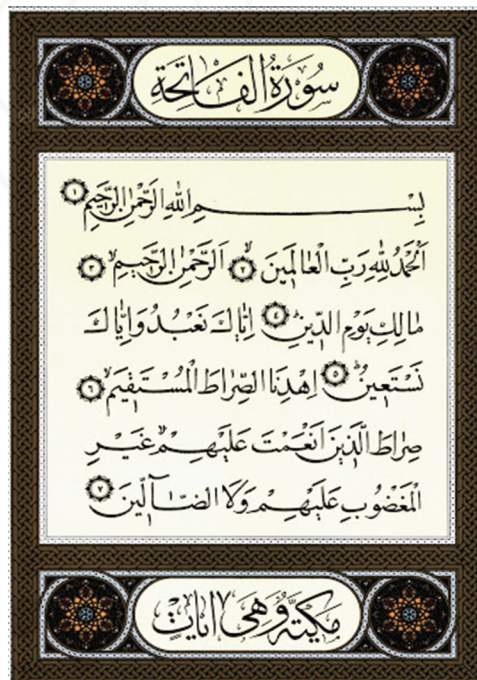 سُورَةُ الْفَاتِحَةِ
بِسْمِ اللهِ الرَّحْمٰنِ الرَّحِيمِ ١
اَلْحَمْدُ لِلّٰهِ رَبِّ الْعَالَمِينَۙ ٢ اَلرَّحْمٰنِ الرَّحِيمِۙ ٣
مَالِكِ يَوْمِ الدِّينِۜ ٤ اِيَّاكَ نَعْبُدُ وَاِيَّاكَ
نَسْتَعِينُۜ ٥ اِهْدِنَا الصِّرَاطَ الْمُسْتَقِيمَۙ ٦
صِرَاطَ الَّذِينَ اَنْعَمْتَ عَلَيْهِمْۙ غَيْرِ
الْمَغْضُوبِ عَلَيْهِمْ وَلَا الضَّٓالِّينَ ٧
مَكِّيَّةٌ وَهِىَ ٧ اٰيَاتٍ